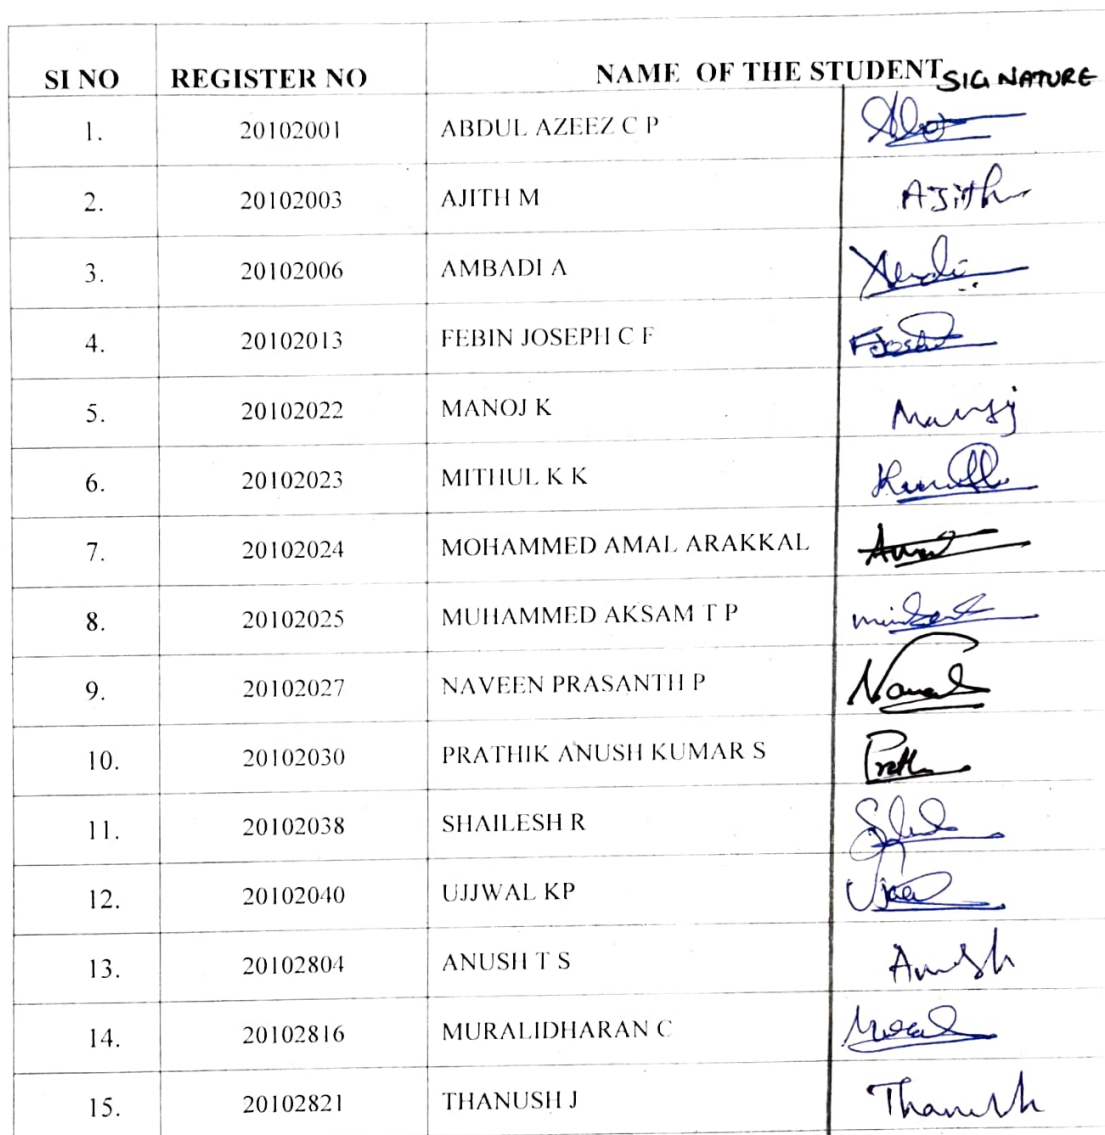 SI NO REGISTER NO NAME OF THE STUDENT SIGNATURE
1. 20102001 ABDUL AZEEZ C P
2. 20102003 AJITH M Ajith
3. 20102006 AMBADI A
4. 20102013 FEBIN JOSEPH C F
5. 20102022 MANOJ K Manoj
6. 20102023 MITHUL K K
7. 20102024 MOHAMMED AMAL ARAKKAL
8. 20102025 MUHAMMED AKSAM T P
9. 20102027 NAVEEN PRASANTH P
10. 20102030 PRATHIK ANUSH KUMAR S
11. 20102038 SHAILESH R
12. 20102040 UJJWAL KP
13. 20102804 ANUSH T S Anush
14. 20102816 MURALIDHARAN C
15. 20102821 THANUSH J Thanush